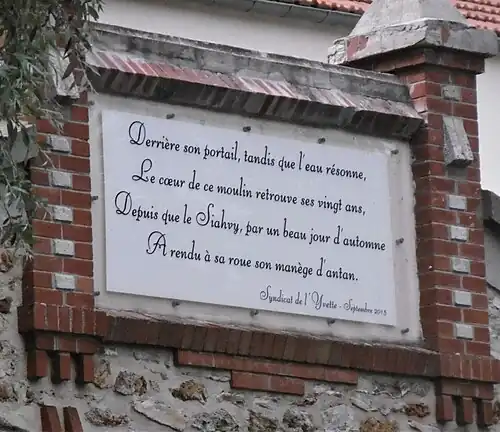 Derrière son portail, tandis que l'eau résonne,
Le cœur de ce moulin retrouve ses vingt ans,
Depuis que le Siahvy, par un beau jour d'automne
A rendu à sa roue son manège d'antan.
Syndicat de l'Yvette - Septembre 2015